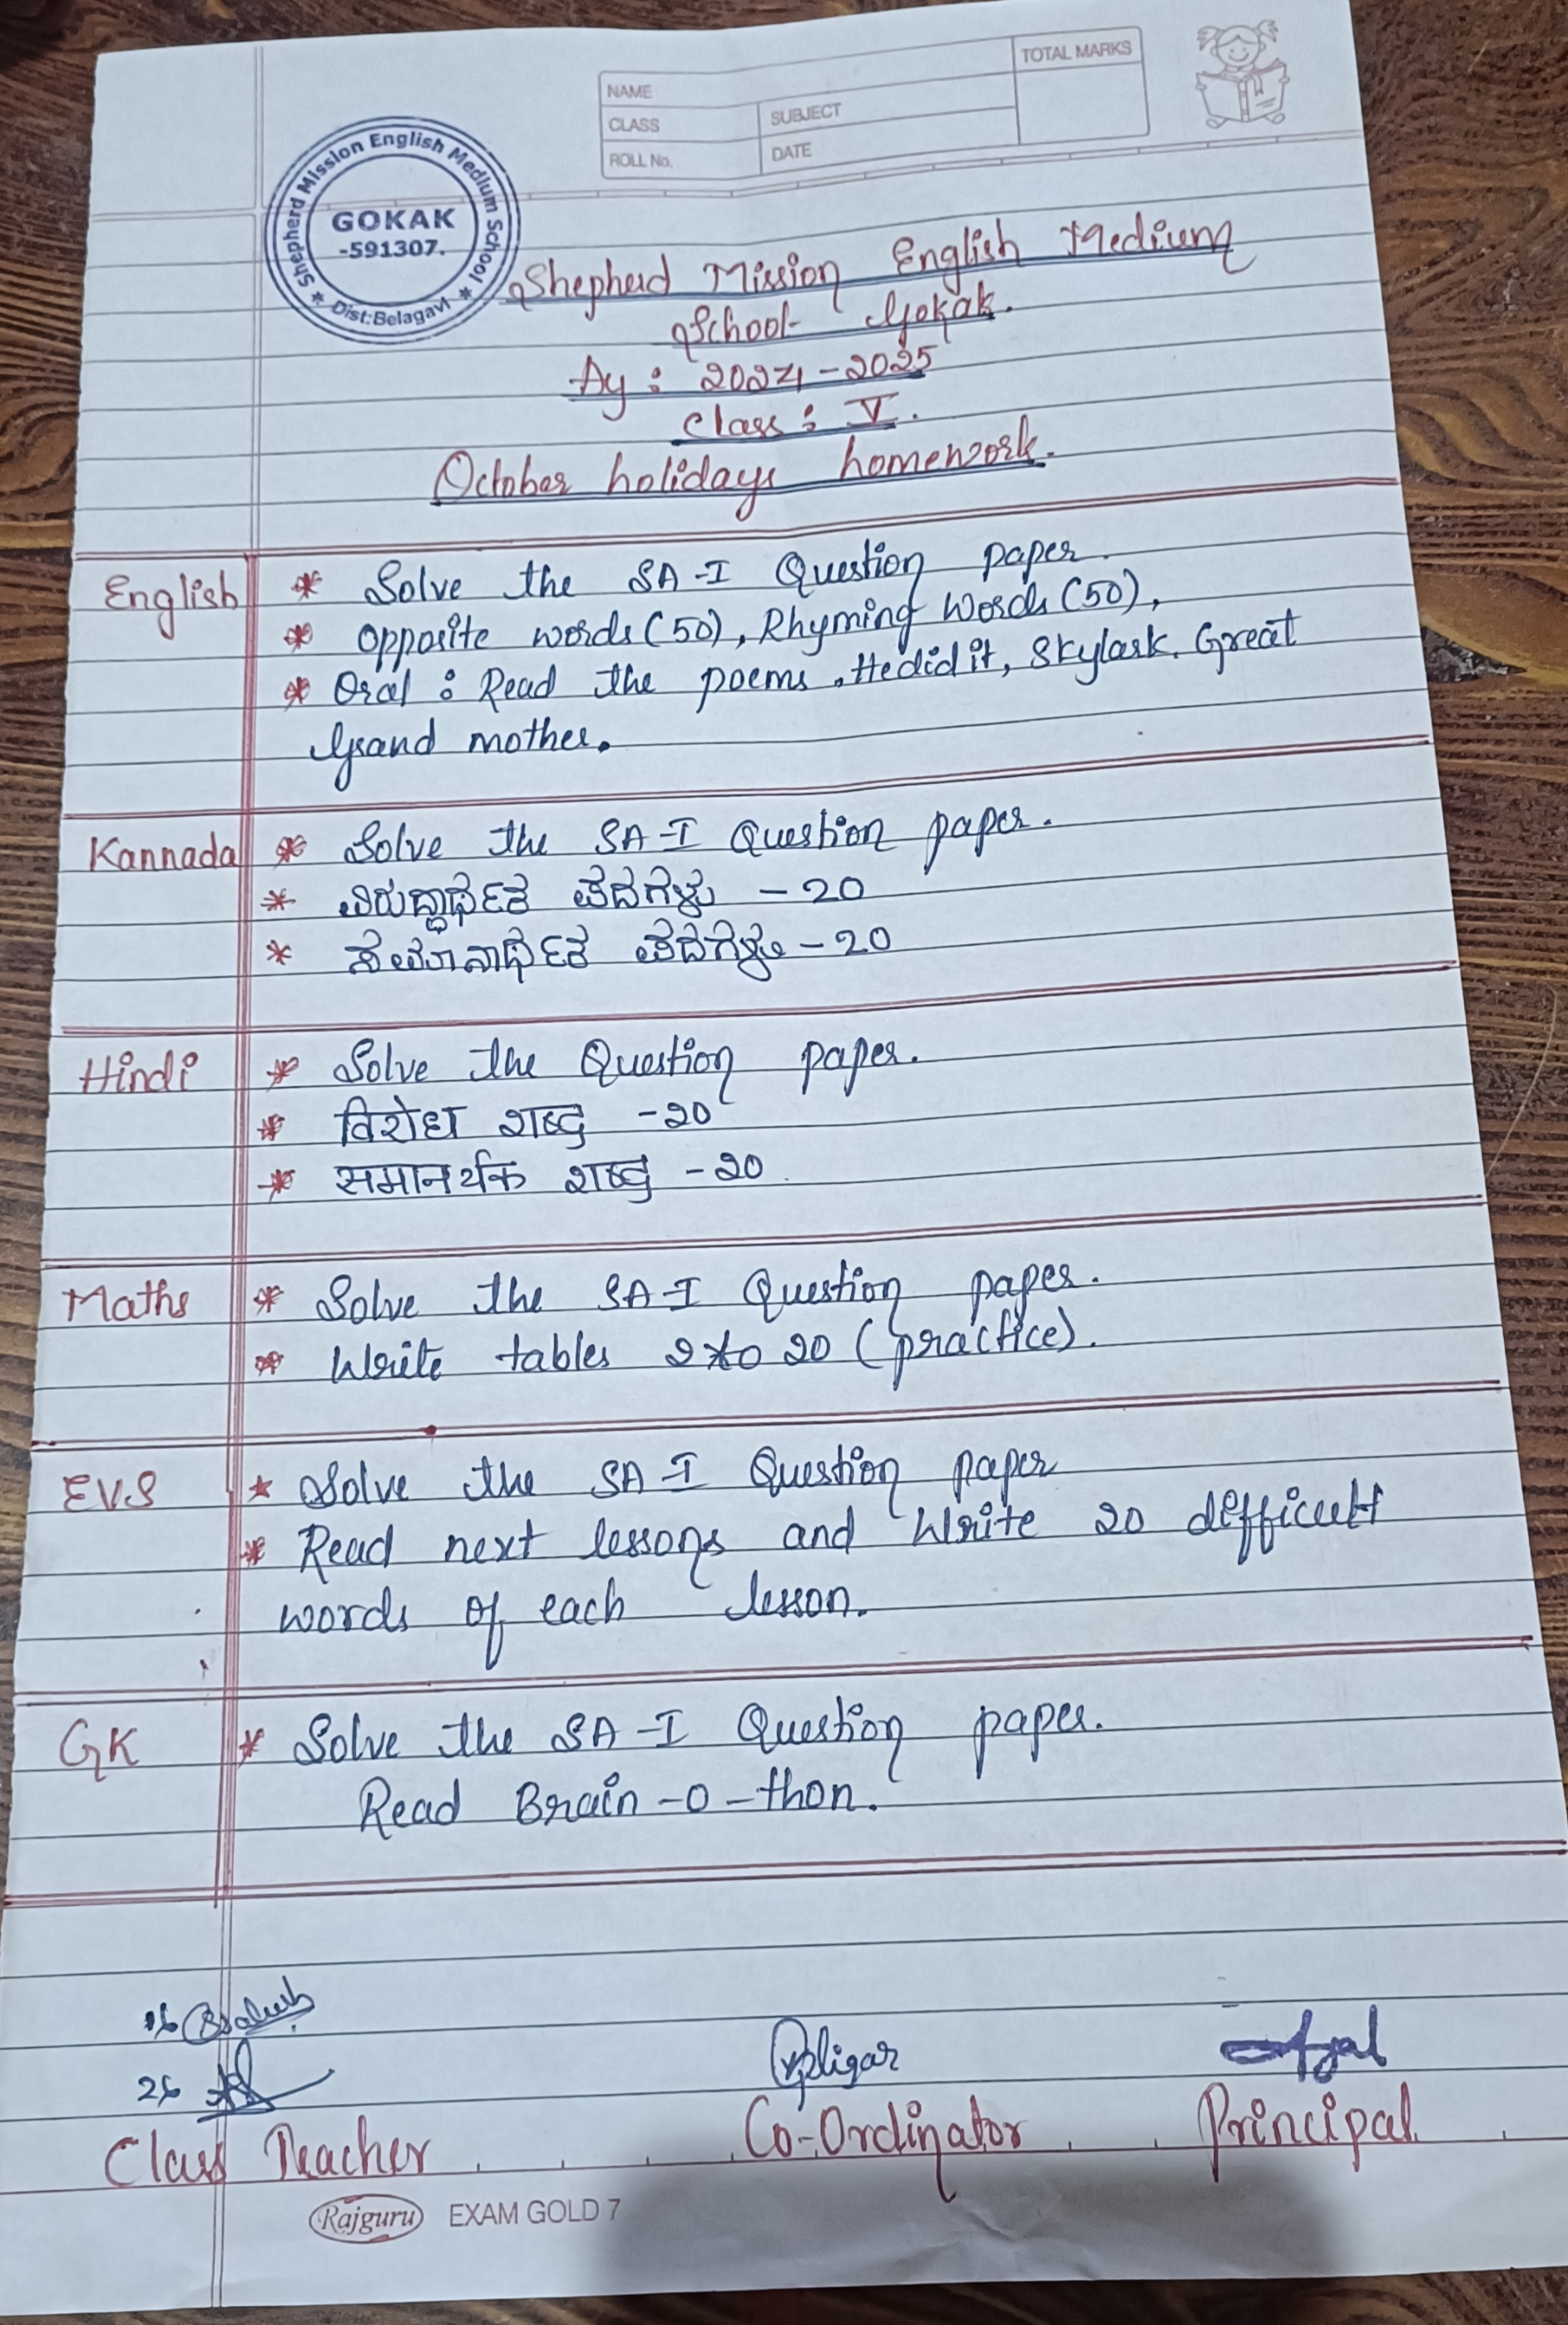 NAME
CLASS
ROLL No.
SUBJECT
DATE
TOTAL MARKS
Shepherd Mission English Medium School
GOKAK
-591307.
Dist:Belagavi
Shepherd Mission English Medium
School- Gokak.
Ay : 2024-2025
Class : V.
October holidays homework.
English * Solve the SA-I Question paper.
* Opposite words(50), Rhyming Words(50),
* Oral : Read the poems. He did it, Skylark. Great
Grand mother.
Kannada * Solve the SA-I Question paper.
* ವಿರುದ್ಧಾರ್ಥಕ ಪದಗಳು - 20
* ಸಮಾನಾರ್ಥಕ ಪದಗಳು - 20
Hindi * Solve the Question paper.
* विरोध शब्द -20
* समानर्थक शब्द -20
Maths * Solve the SA-I Question paper.
* Write tables 2 to 20 (practice).
EVS * Solve the SA-I Question paper
* Read next lessons and Write 20 difficult
words of each lesson.
GK * Solve the SA-I Question paper.
Read Brain-o-thon.
Class Teacher Co-Ordinator Principal
Rajguru EXAM GOLD 7